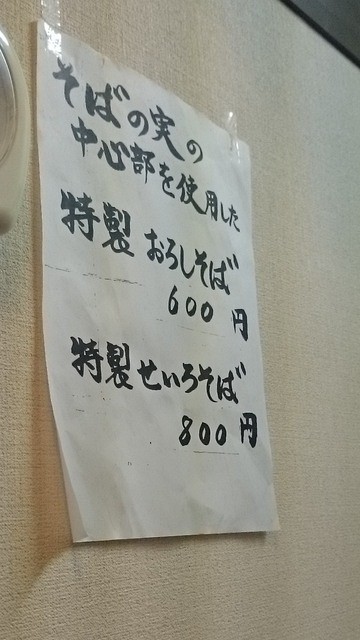 そばの実の
中心部を使用した
特製 おろしそば
600円
特製せいろそば
800円